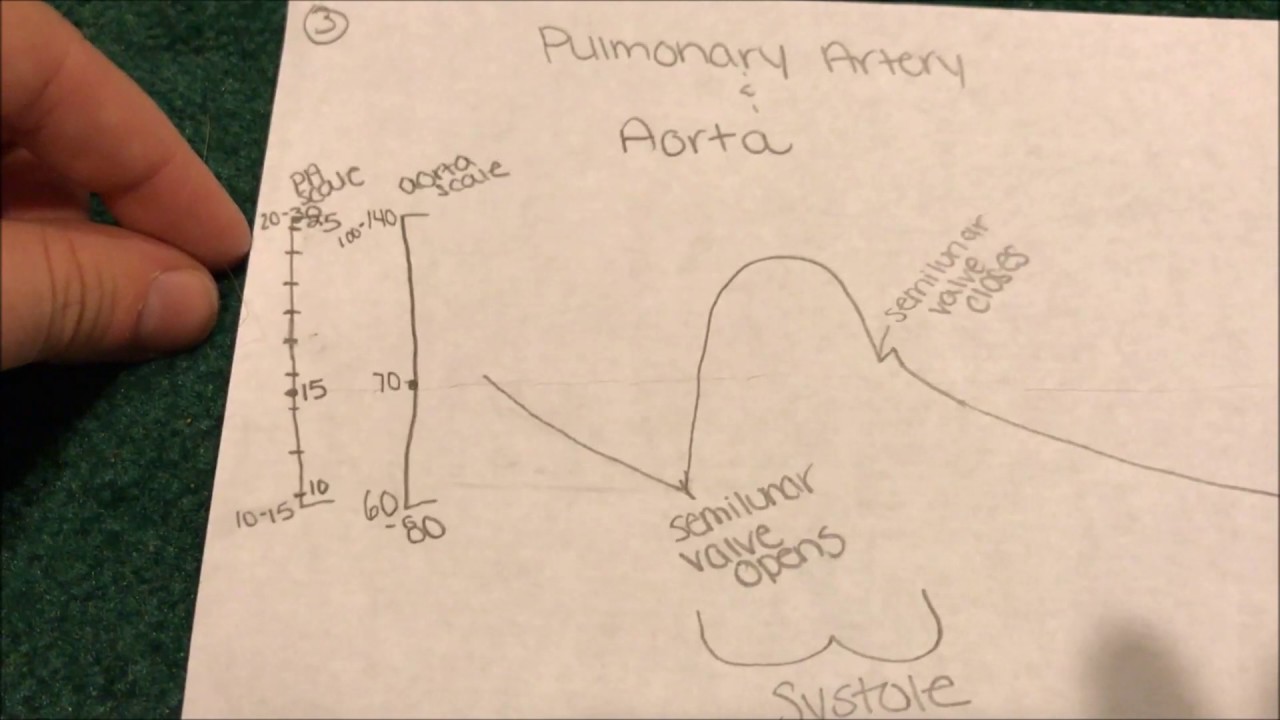 3
Pulmonary Artery
&
Aorta
PA
scale
aorta
scale
20-30
25
100-140
15
70
10
10-15
60
-80
semilunar
valve
closes
semilunar
valve
opens
Systole